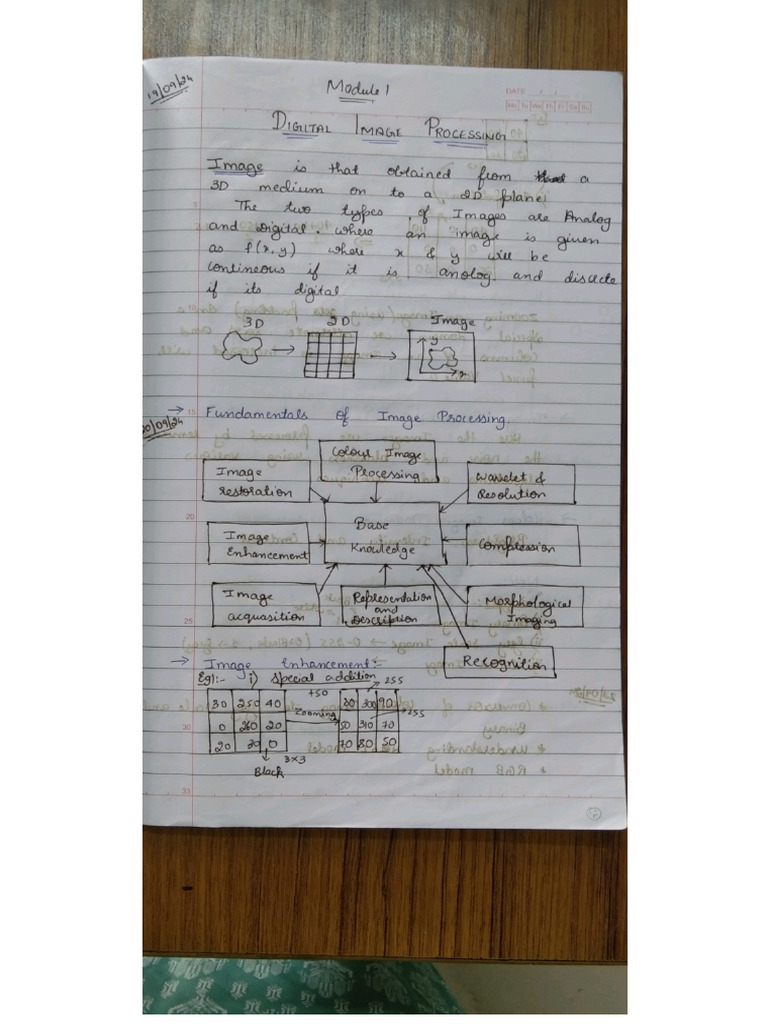 19/09/24
Module 1
DATE
Mo Tu We Th Fr Sa Su
DIGITAL IMAGE PROCESSING
Image is that obtained from a
3D medium on to a 2D plane
The two types of Images are Analog
and Digital. where an image is given
as f(x, y) where x & y will be
contineous if it is analog and discete
if its digital
3D 2D Image
y
x
20/09/24
→ Fundamentals of Image Processing.
Colour Image
Processing
Image
restoration
Wavelet &
Resolution
Base
Knowledge
Image
Enhancement
Compression
Image
acquasition
Representation
and
Description
Morphological
Imaging
Recognition
→ Image Enhancement:-
Eg):- i) Special addition
255
30 250 40
+50
Zooming
80 300 90
255
0 260 20
50 310 70
20 30 0
70 80 50
3×3
Black
15
20
25
30
33